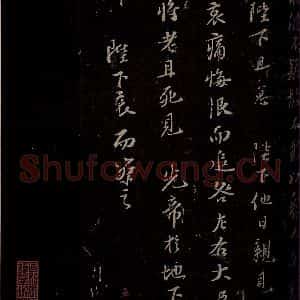 陛下且容 陛下他日親見
哀痛悔恨而追咎左右大臣
將老且死見 先帝於地下
陛下哀而察之
Shufawang.CN